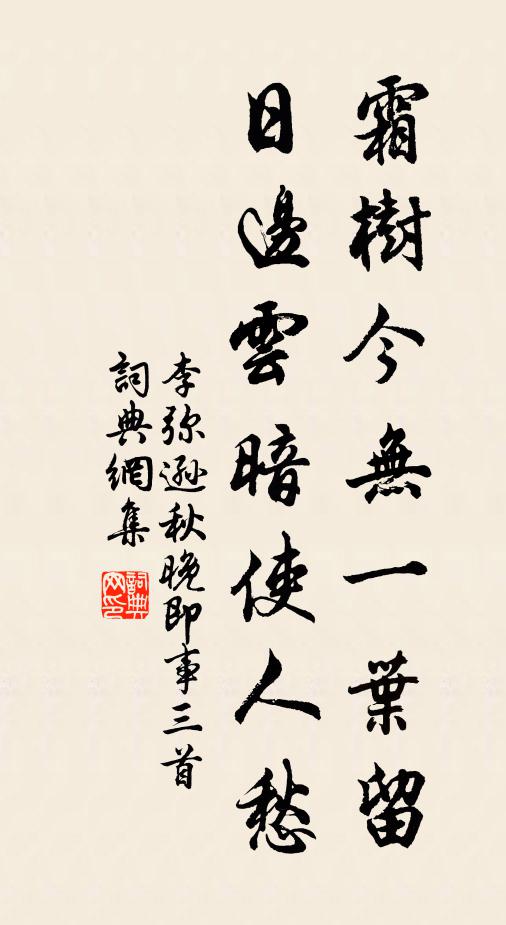 霜樹今無一葉留
日邊雲暗使人愁
李弥遜秋晚即事三首
詞典網集
詞典网印